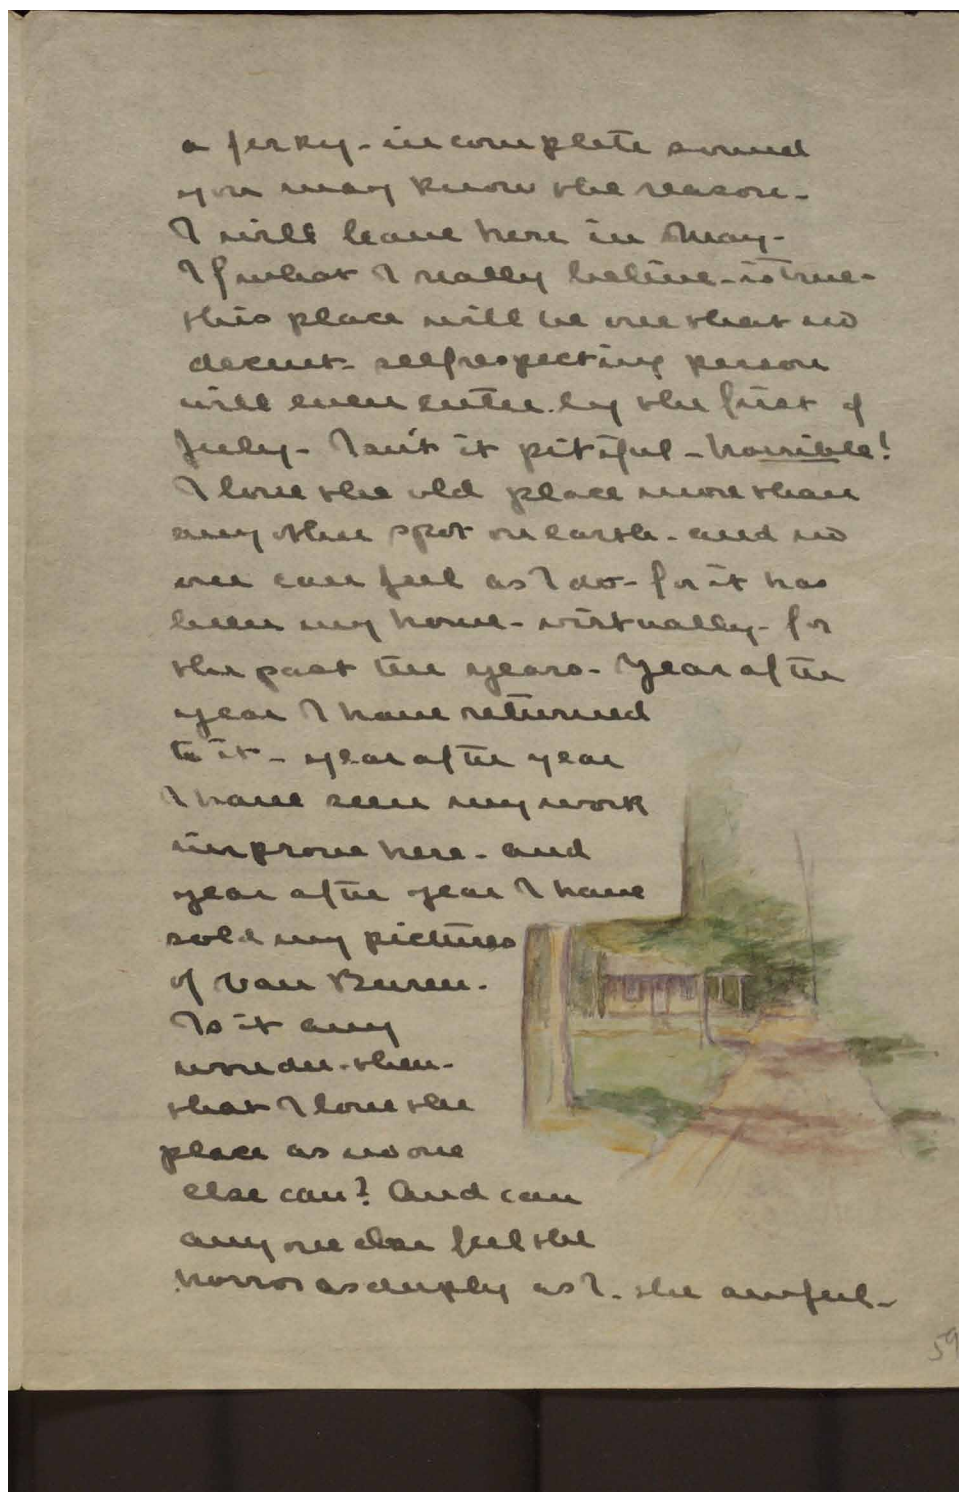 a jerky - incomplete sound
you may know the reason -
I will leave here in May -
If what I really believe - is true -
this place will be one that no
decent - selfrespecting person
will even enter - by the first of
July - Isn't it pitiful - horrible!
I love the old place more than
any other spot on earth - and no
one can feel as I do - for it has
been my home - virtually - for
the past ten years - Year after
year I have returned
to it - year after year
I have seen my work
improve here - and
year after year I have
sold my pictures
of Van Buren.
Is it any
wonder - then -
that I love the
place as no one
else can? And can
any one else feel the
horror as deeply as I - the awful -
59